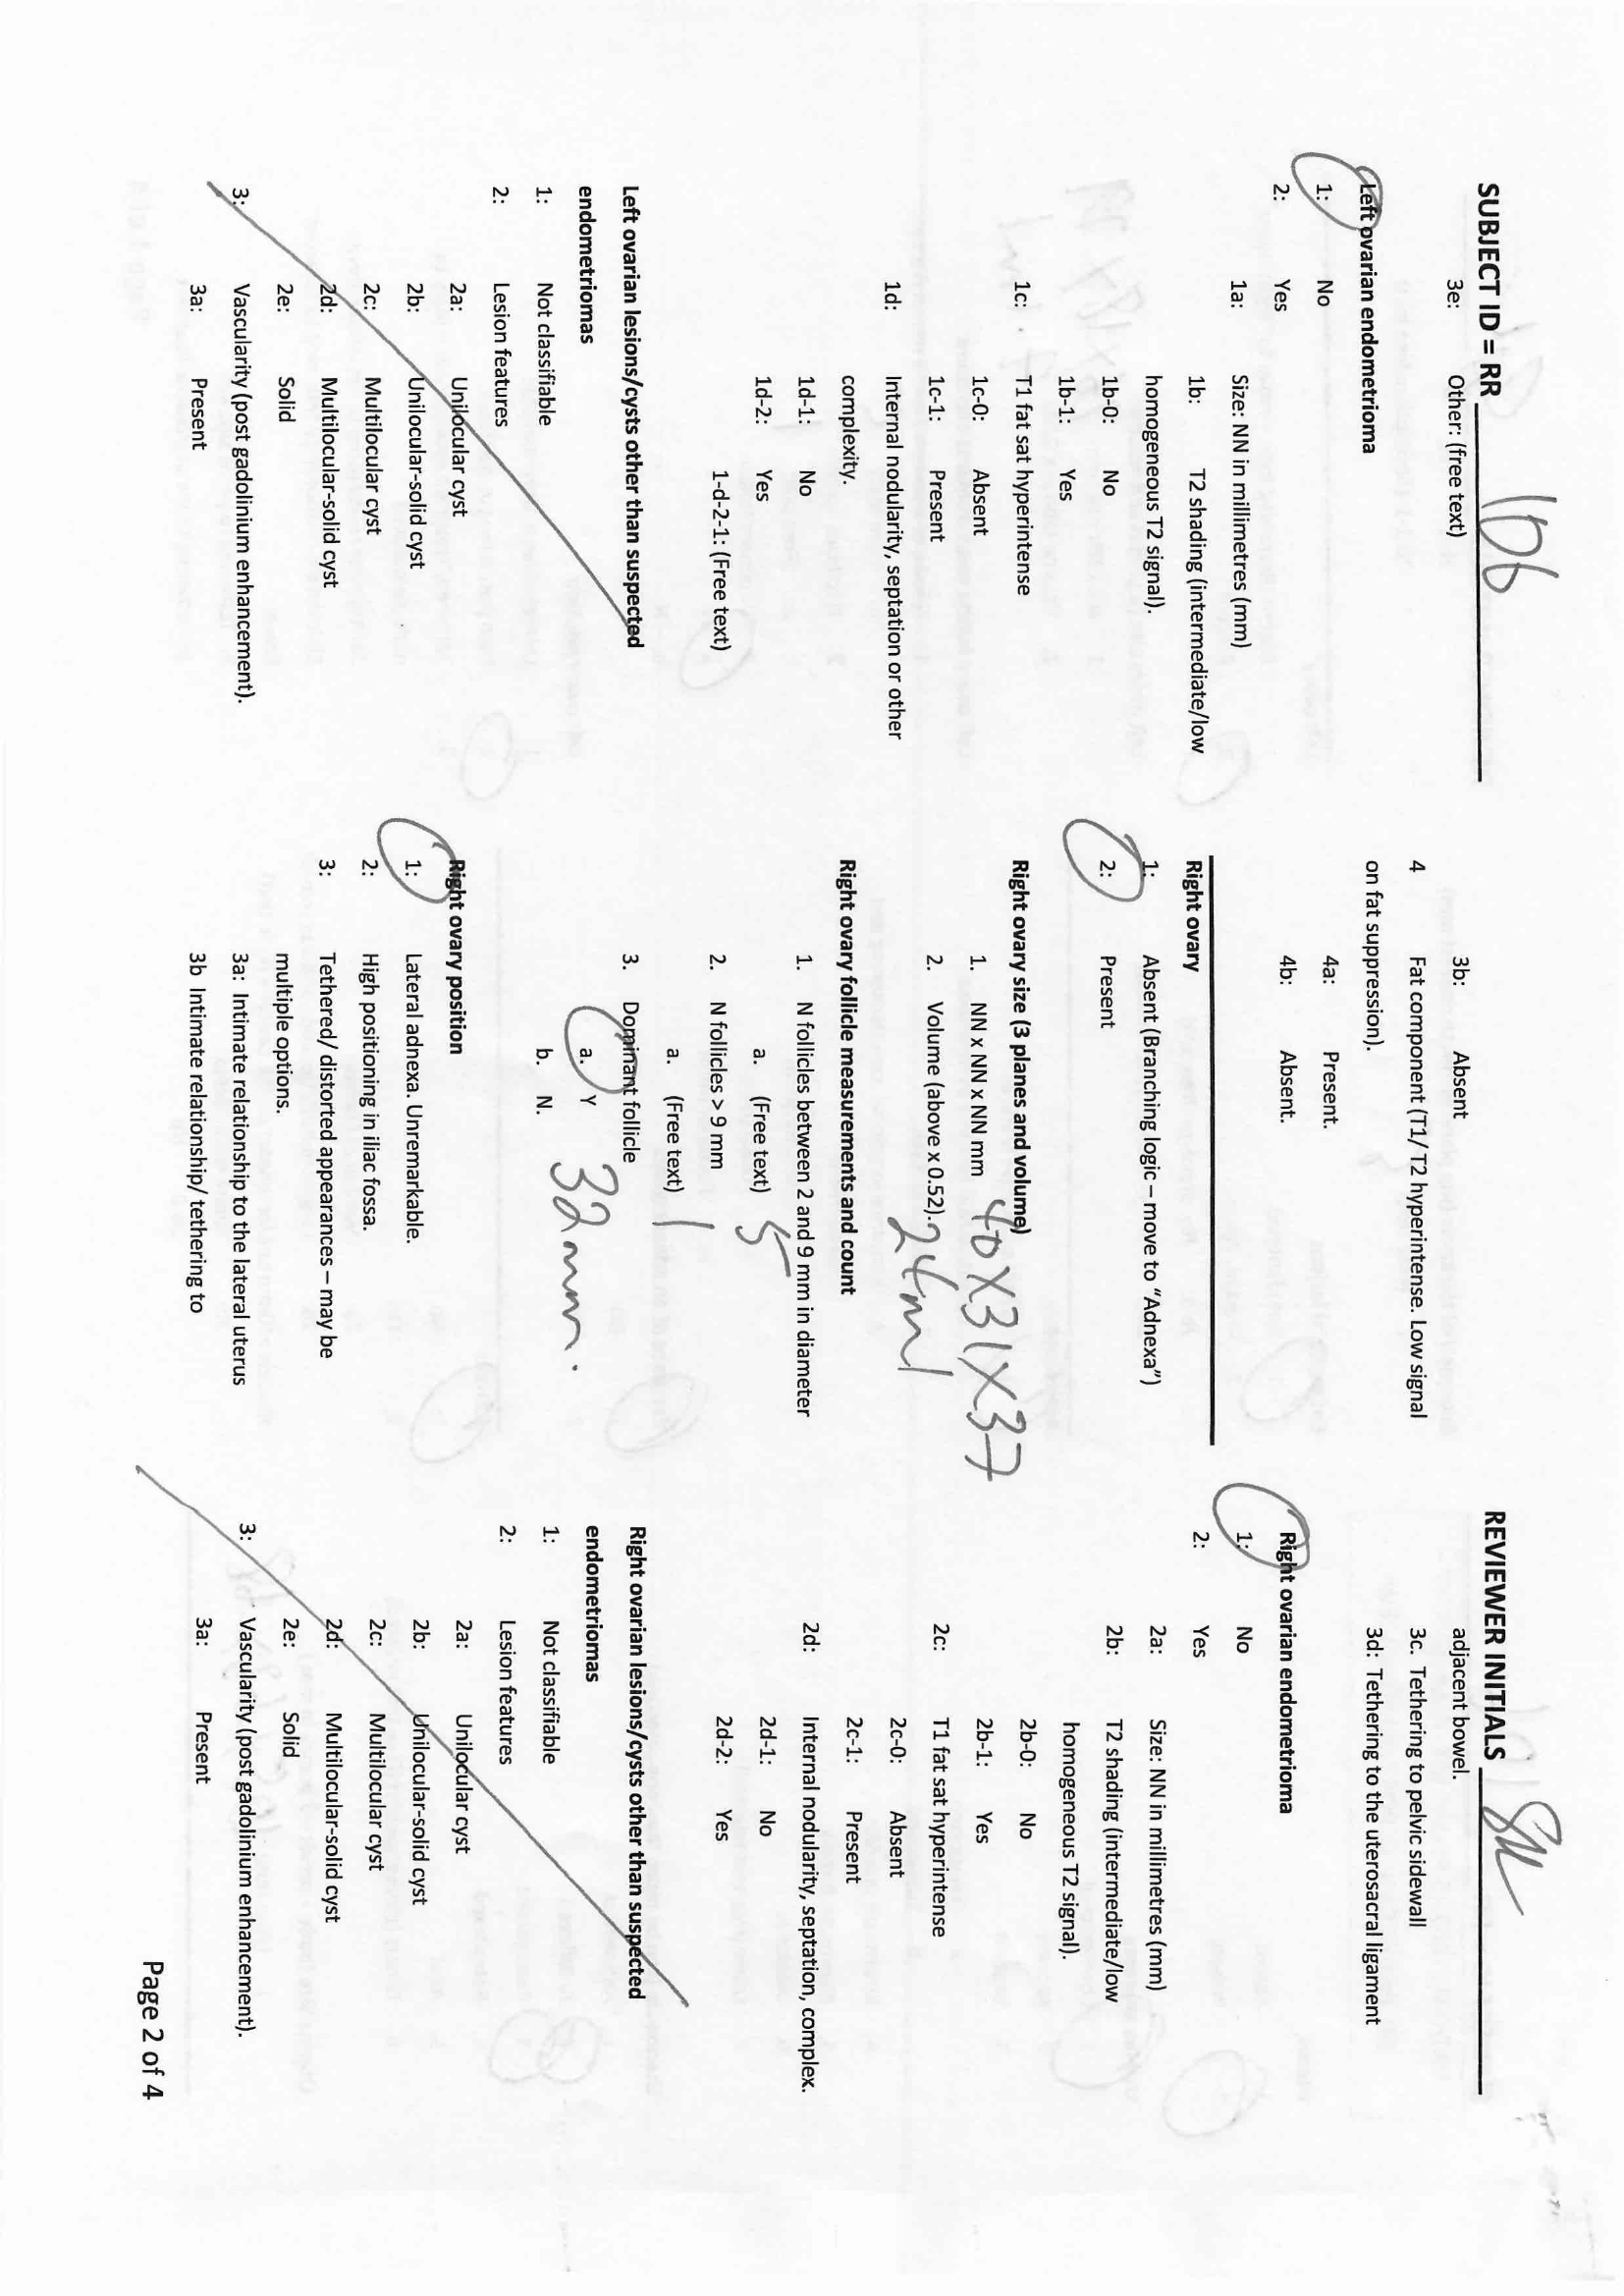 SUBJECT ID = RR 106
REVIEWER INITIALS
3e: Other: (free text)
Left ovarian endometrioma
1: No
2: Yes
1a: Size: NN in millimetres (mm)
1b: T2 shading (intermediate/low
homogeneous T2 signal).
1b-0: No
1b-1: Yes
1c: T1 fat sat hyperintense
1c-0: Absent
1c-1: Present
1d: Internal nodularity, septation or other
complexity.
1d-1: No
1d-2: Yes
1-d-2-1: (Free text)
Left ovarian lesions/cysts other than suspected
endometriomas
1: Not classifiable
2: Lesion features
2a: Unilocular cyst
2b: Unilocular-solid cyst
2c: Multilocular cyst
2d: Multilocular-solid cyst
2e: Solid
3: Vascularity (post gadolinium enhancement).
3a: Present
3b: Absent
4 Fat component (T1/ T2 hyperintense. Low signal
on fat suppression).
4a: Present.
4b: Absent.
Right ovary
1: Absent (Branching logic – move to "Adnexa")
2: Present
Right ovary size (3 planes and volume)
1. NN x NN x NN mm 40 X 31 X 37
2. Volume (above x 0.52). 24ml
Right ovary follicle measurements and count
1. N follicles between 2 and 9 mm in diameter
a. (Free text) 5
2. N follicles > 9 mm
a. (Free text) 1
3. Dominant follicle
a. Y
b. N. 32mm.
Right ovary position
1: Lateral adnexa. Unremarkable.
2: High positioning in iliac fossa.
3: Tethered/ distorted appearances – may be
multiple options.
3a: Intimate relationship to the lateral uterus
3b Intimate relationship/ tethering to
adjacent bowel.
3c. Tethering to pelvic sidewall
3d: Tethering to the uterosacral ligament
Right ovarian endometrioma
1: No
2: Yes
2a: Size: NN in millimetres (mm)
2b: T2 shading (intermediate/low
homogeneous T2 signal).
2b-0: No
2b-1: Yes
2c: T1 fat sat hyperintense
2c-0: Absent
2c-1: Present
2d: Internal nodularity, septation, complex.
2d-1: No
2d-2: Yes
Right ovarian lesions/cysts other than suspected
endometriomas
1: Not classifiable
2: Lesion features
2a: Unilocular cyst
2b: Unilocular-solid cyst
2c: Multilocular cyst
2d: Multilocular-solid cyst
2e: Solid
3: Vascularity (post gadolinium enhancement).
3a: Present
Page 2 of 4